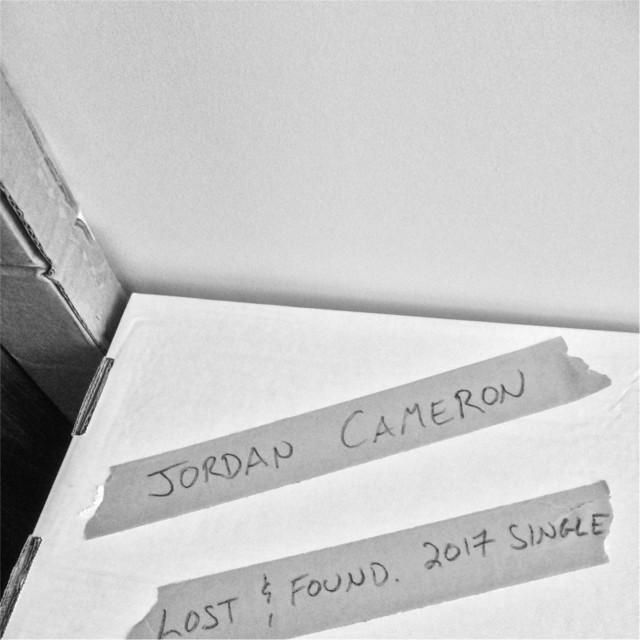 JORDAN CAMERON
LOST & FOUND. 2017 SINGLE